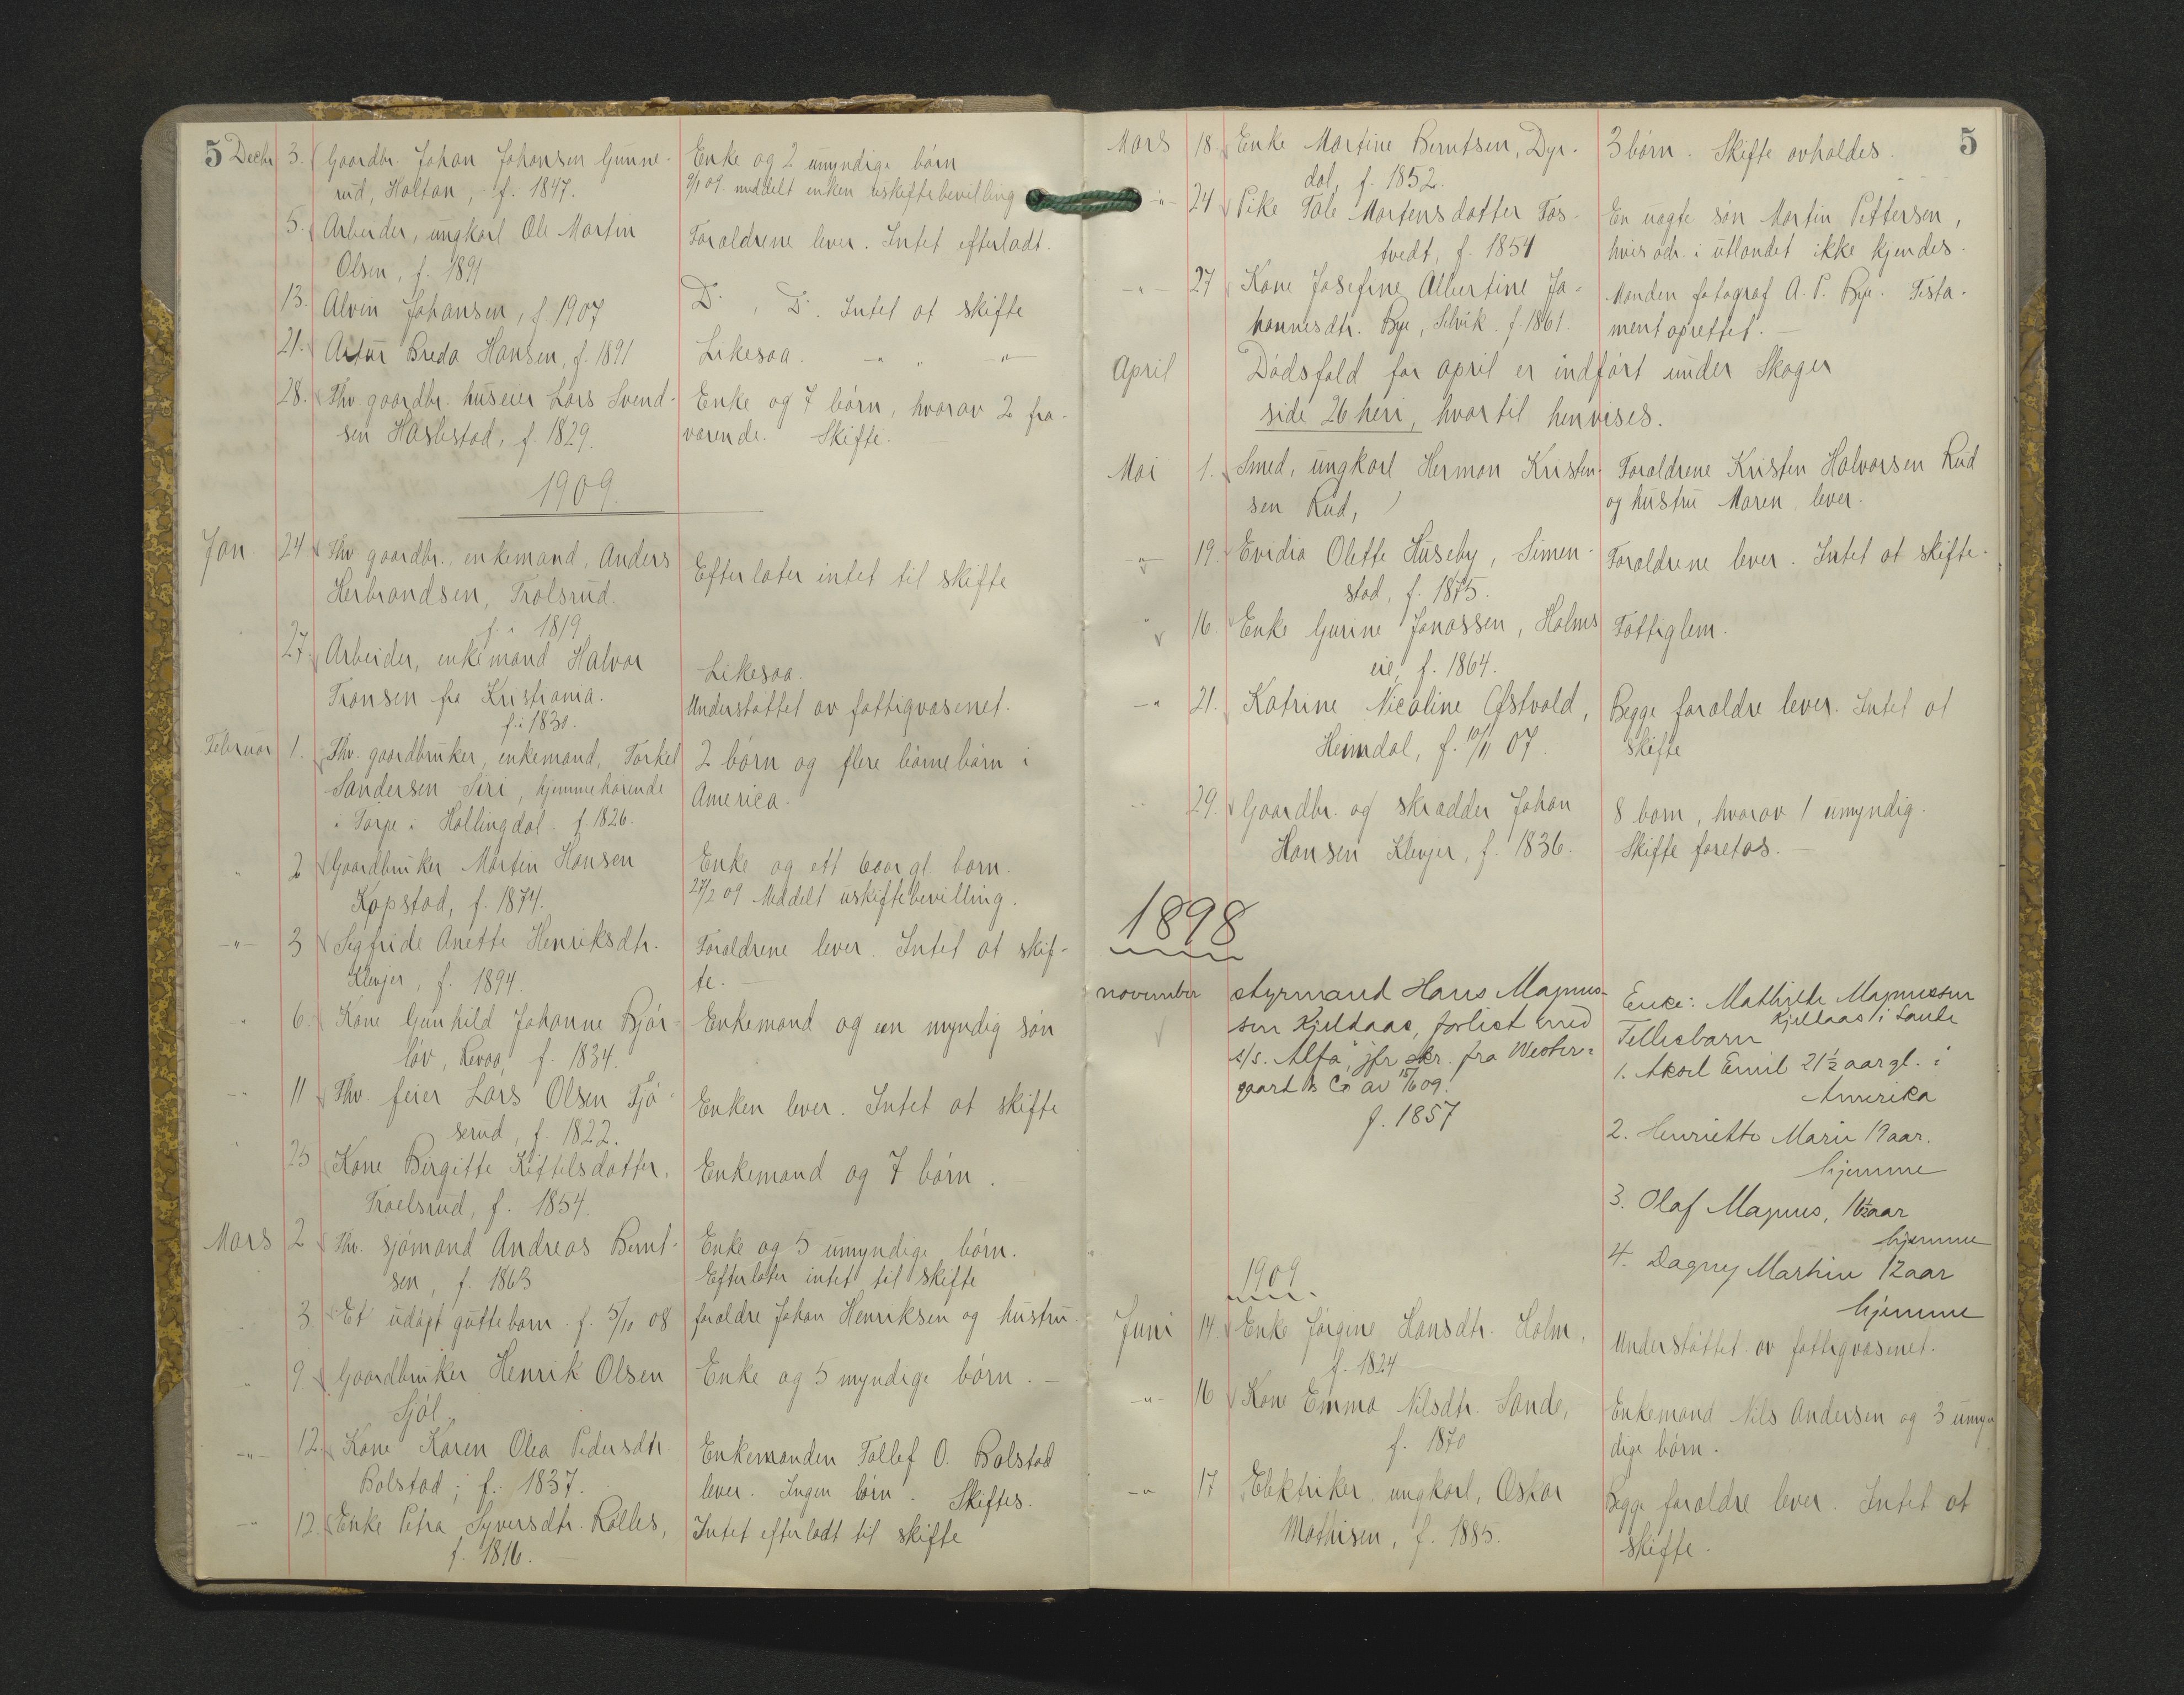 5 Decbr 3. Gaardbr. Johan Johansen Gunne-
rud, Holtan, f. 1847.
Enke og 2 umyndige børn
9/1 09. meddelt enken uskiftebevilling
5. Arbeider, ungkarl Ole Martin
Olsen, f. 1891
Forældrene lever. Intet efterladt.
13. Alvin Johansen, f 1907
D. , D. Intet at skifte
21. Artur Breda Hansen, f. 1891
Likesaa. —"— " —"—
28. Fhv gaardbr. huseier Lars Svend-
sen Haslestad, f. 1829.
Enke og 7 børn, hvorav 2 fra-
værende. Skifte.
1909.
Jan. 24 Fhv gaardbr., enkemand, Anders
Herbrandsen, Trolsrud.
f. 1819
Efterlater intet til skifte
27. Arbeider, enkemand Halvor
Transen fra Kristiania.
f. 1830.
Likesaa.
Understøttet av fattigvæsenet.
Februar 1. Fhv. gaardbruker, enkemand, Torkel
Sandersen Siri, hjemmehørende
i Torpe i Hallingdal. f 1826.
2 børn og flere børnebørn i
America.
" 2 Gaardbruker Martin Hansen
Kopstad, f. 1874.
Enke og ett 6 aar gl. barn.
27/2 09 Meddelt uskiftebevilling.
—"— 3 Sigfride Anette Henriksdtr.
Klevjer, f. 1894.
Forældrene lever. Intet at skif-
te. —
" 6. Kone Gunhild Johanne Bjør-
løv, Revaa, f. 1834.
Enkemand og en myndig søn
—"— 11 Fhv. feier Lars Olsen Fjø-
serud, f. 1822.
Enken lever. Intet at skifte
" 25 Kone Birgitte Kittelsdatter,
Troelsrud, f. 1854.
Enkemand og 7 børn.
Mars 2 Fhv. sjømand Andreas Bernt-
sen, f. 1863
Enke og 5 umyndige børn.
Efterlater intet til skifte
" 3. Et udøpt guttebarn. f. 5/10 08
forældre Johan Henriksen og hustru.
" 9 Gaardbruker Henrik Olsen
Sjøl.
Enke og 5 myndige børn. —
—"— 12. Kone Karen Olea Pedersdtr.
Bolstad; f. 1837.
Enkemanden Tollef O. Bolstad
lever. Ingen børn. Skiftes.
—"— 12. Enke Petra Syversdtr. Rølles,
f. 1816. —
Intet efterladt til skifte
5
Mars 18. Enke Martine Berntsen, Dyr-
dal, f. 1852.
3 børn. Skifte avholdes.
—"— 24 Pike Tale Martensdatter Fos-
tvedt, f. 1854
En uægte søn Martin Pettersen,
hvis adr. i utlandet ikke kjendes.
—"— 27 Kone Josefine Albertine Jo-
hannesdtr. Bye, Selvik. f. 1861.
Manden fotograf A. P. Bye. Testa-
ment oprettet. —
April Dødsfald for april er indført under Skoger
side 26 heri, hvortil henvises.
Mai 1. Smed, ungkarl Herman Kristen-
sen Rud,
Forældrene Kristen Halvorsen Rud
og hustru Maren, lever.
—"— 19. Evidia Olette Huseby, Simen-
stad, f. 1875.
Forældrene lever. Intet at skifte.
" 16. Enke Gurine Jonassen, Holms
eie, f. 1864.
Fattiglem.
—"— 21. Katrine Nicoline Østvold,
Heimdal, f. 10/11 07.
Begge forældre lever. Intet at
skifte
" 29. Gaardbr. og skrædder Johan
Hansen Klevjer, f. 1836.
8 barn, hvorav 1 umyndig.
Skifte foretas. —
1898
november styrmand Hans Magnus-
sen Kjeldaas, forlist med
s/s. "Alfa", jfr skr. fra Wester-
gaart & Co av 15/6 09.
f. 1857
Enke: Mathilde Magnussen
Kjeldaas i Sande
Fellesbarn
1. Aksel Emil 21½ aar gl. i
Amerika
2. Henriette Marie 19 aar.
hjemme
3. Olaf Magnus, 16½ aar
hjemme
4. Dagny Marhin 12 aar
hjemme
1909
Juni 14. Enke Jørgine Hansdtr. Holm,
f. 1824
Understøttet av fattigvæsenet.
—"— 16 Kone Emma Nilsdtr. Sande,
f. 1870
Enkemand Nils Andersen og 3 umyn
dige børn.
—"— 17 Elektriker, ungkarl, Oskar
Mathisen, f. 1885.
Begge forældre lever. Intet at
skifte.